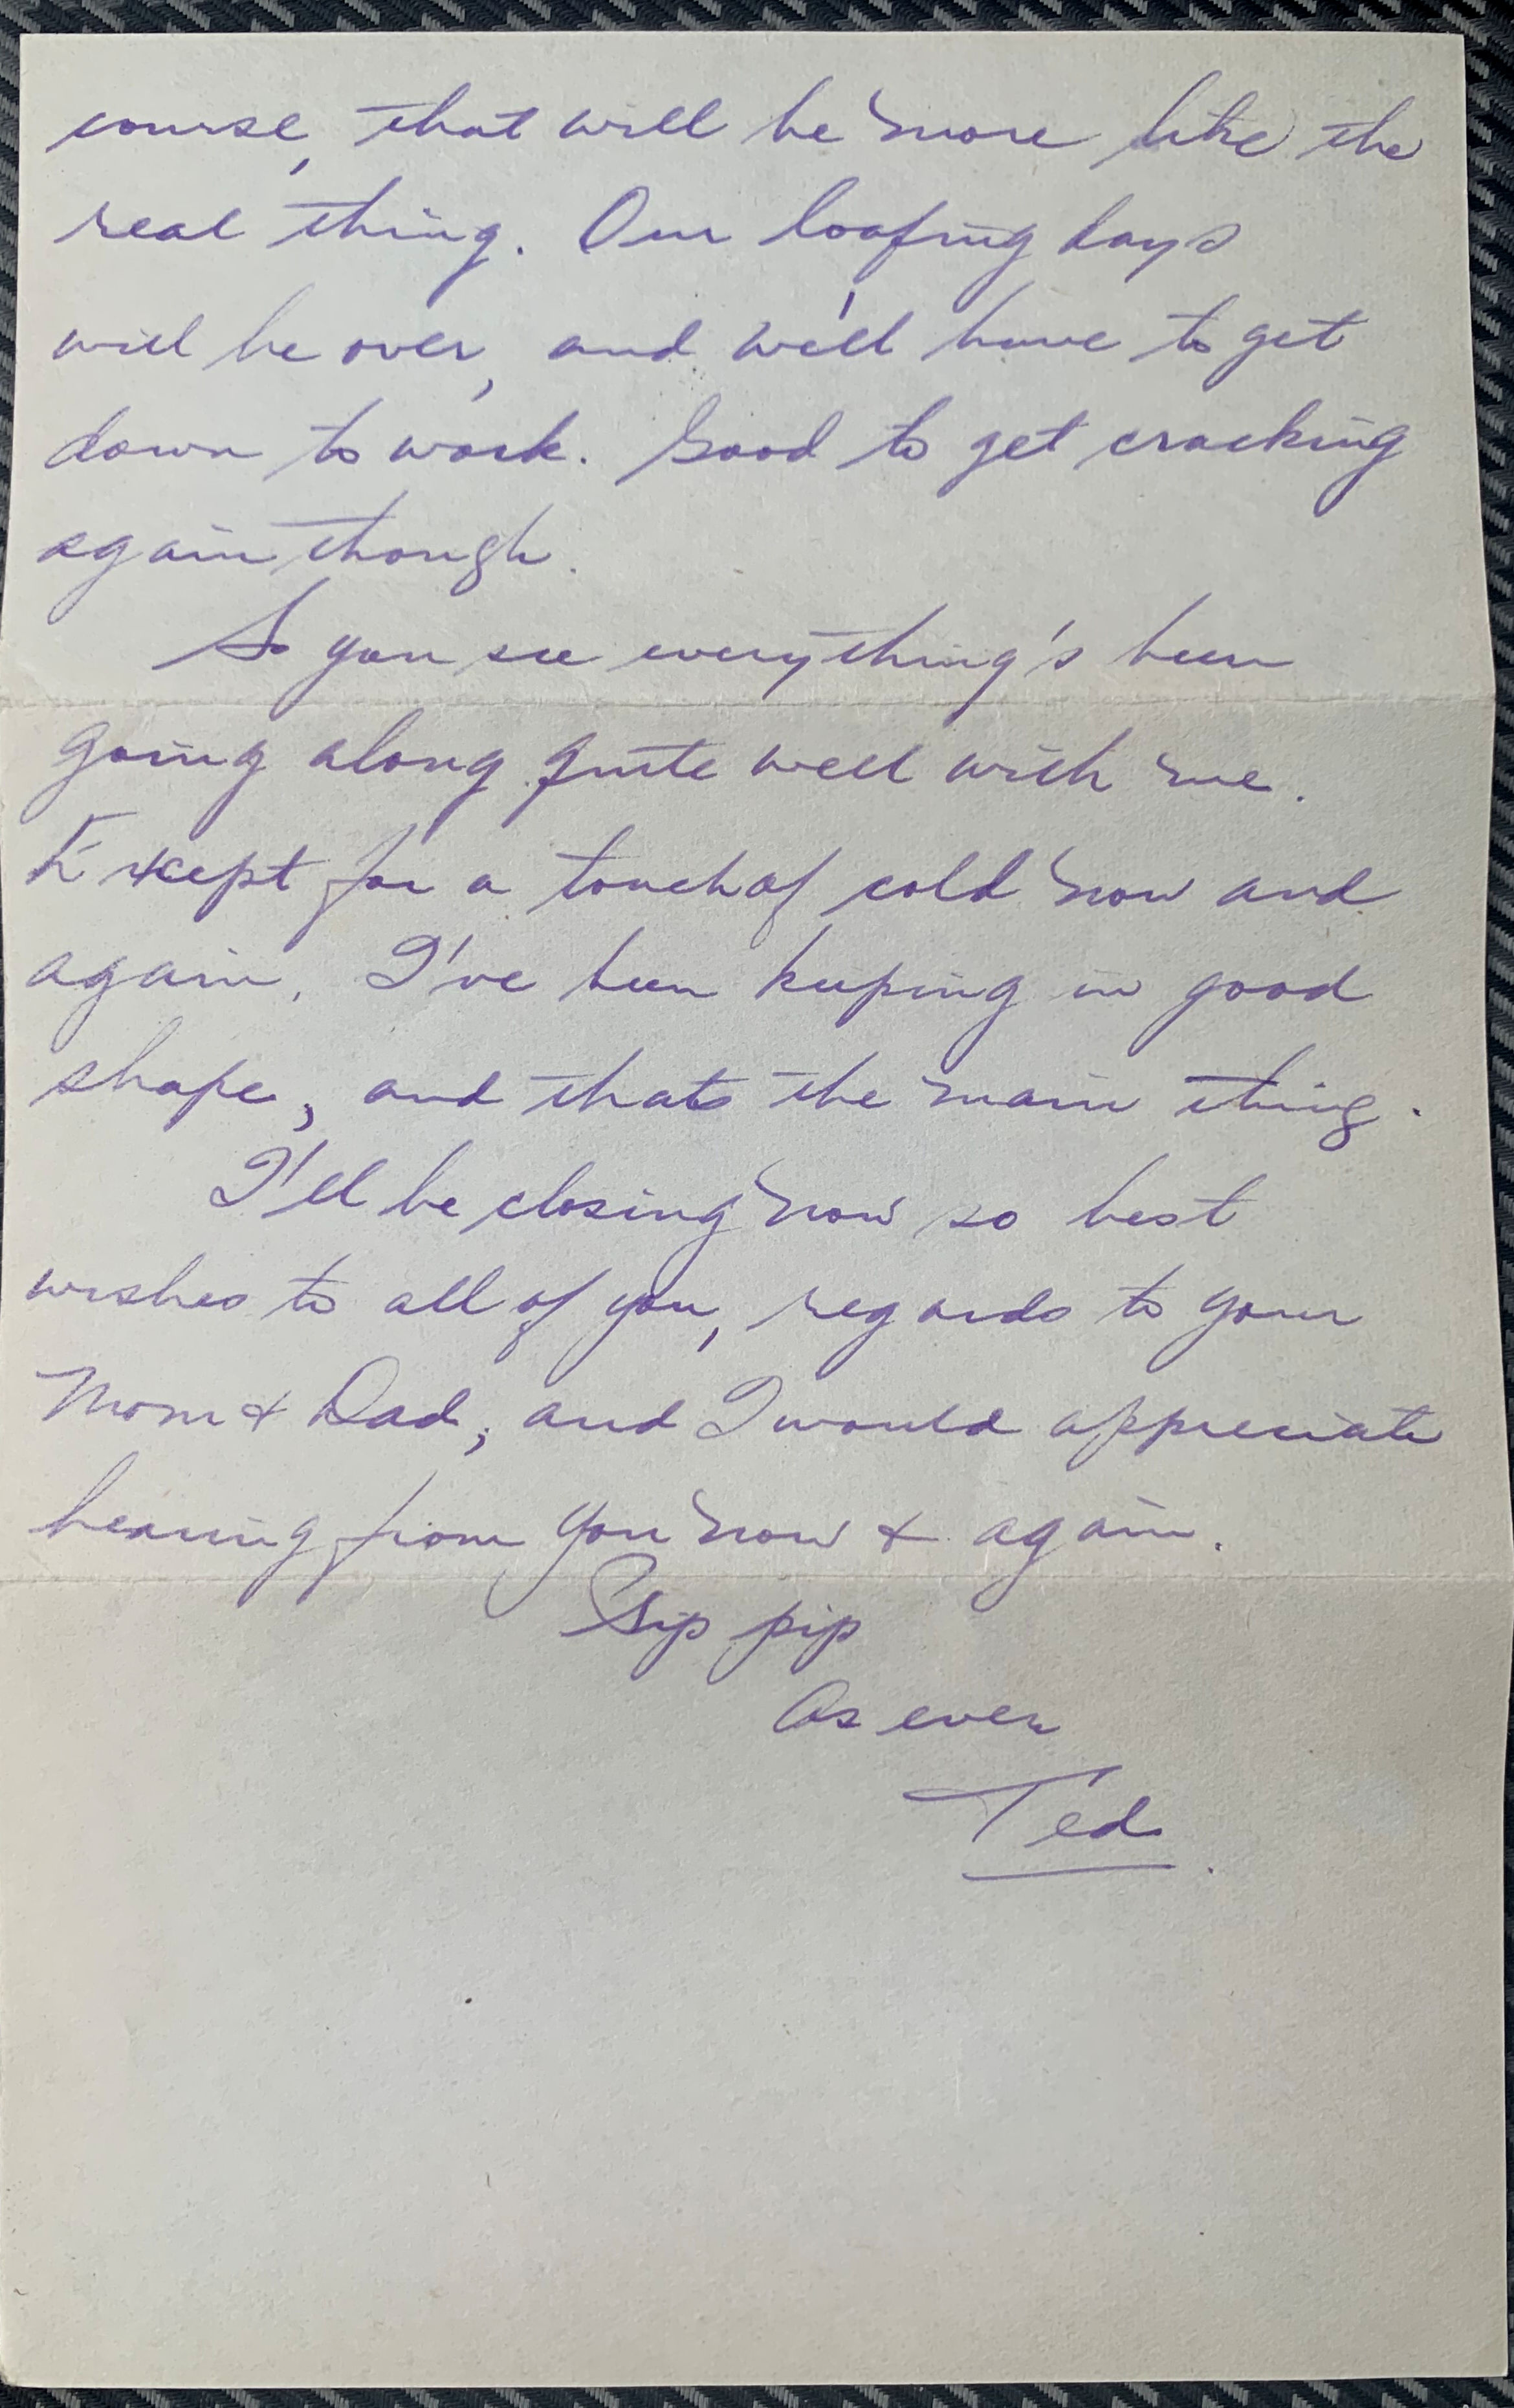 course, that will be more like the
real thing. Our loafing days
will be over, and we'll have to get
down to work. Good to get cracking
again though.
So you see everything's been
going along quite well with me.
Except for a touch of cold now and
again, I've been keeping in good
shape, and thats the main thing.
I'll be closing now so best
wishes to all of you, regards to your
Mom & Dad, and I would appreciate
hearing from you now & again.
pip
As ever
Ted.